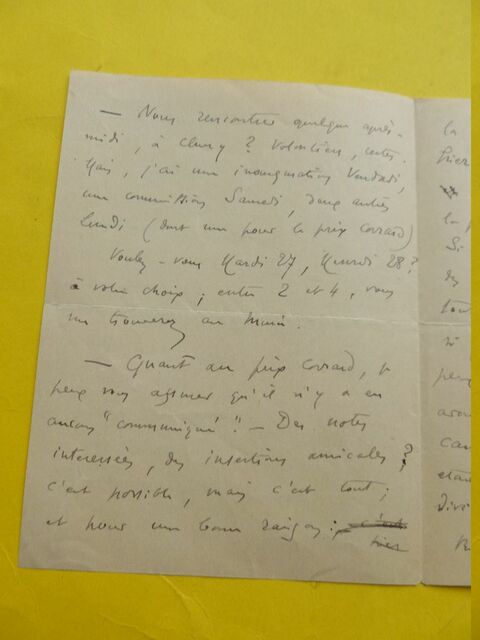 — Nous rencontrer quelque après-
midi, à Cluny ? Volontiers, certes.
Mais, j'ai une inauguration Vendredi,
une commission Samedi, deux autres
Lundi (dont une pour le prix Corrard)
Voulez-vous Mardi 27, Mercredi 28 ?
à votre choix ; entre 2 et 4, vous
me trouverez au Musée.
— Quant au prix Corrard, je
peux vous assurer qu'il n'y a eu
aucun "communiqué". — Des notes
intéressées, des insertions amicales ?
c'est possible, mais c'est tout ;
et pour une bonne raison :
la
la
Si
des
tout
peu
avo
etan
divi